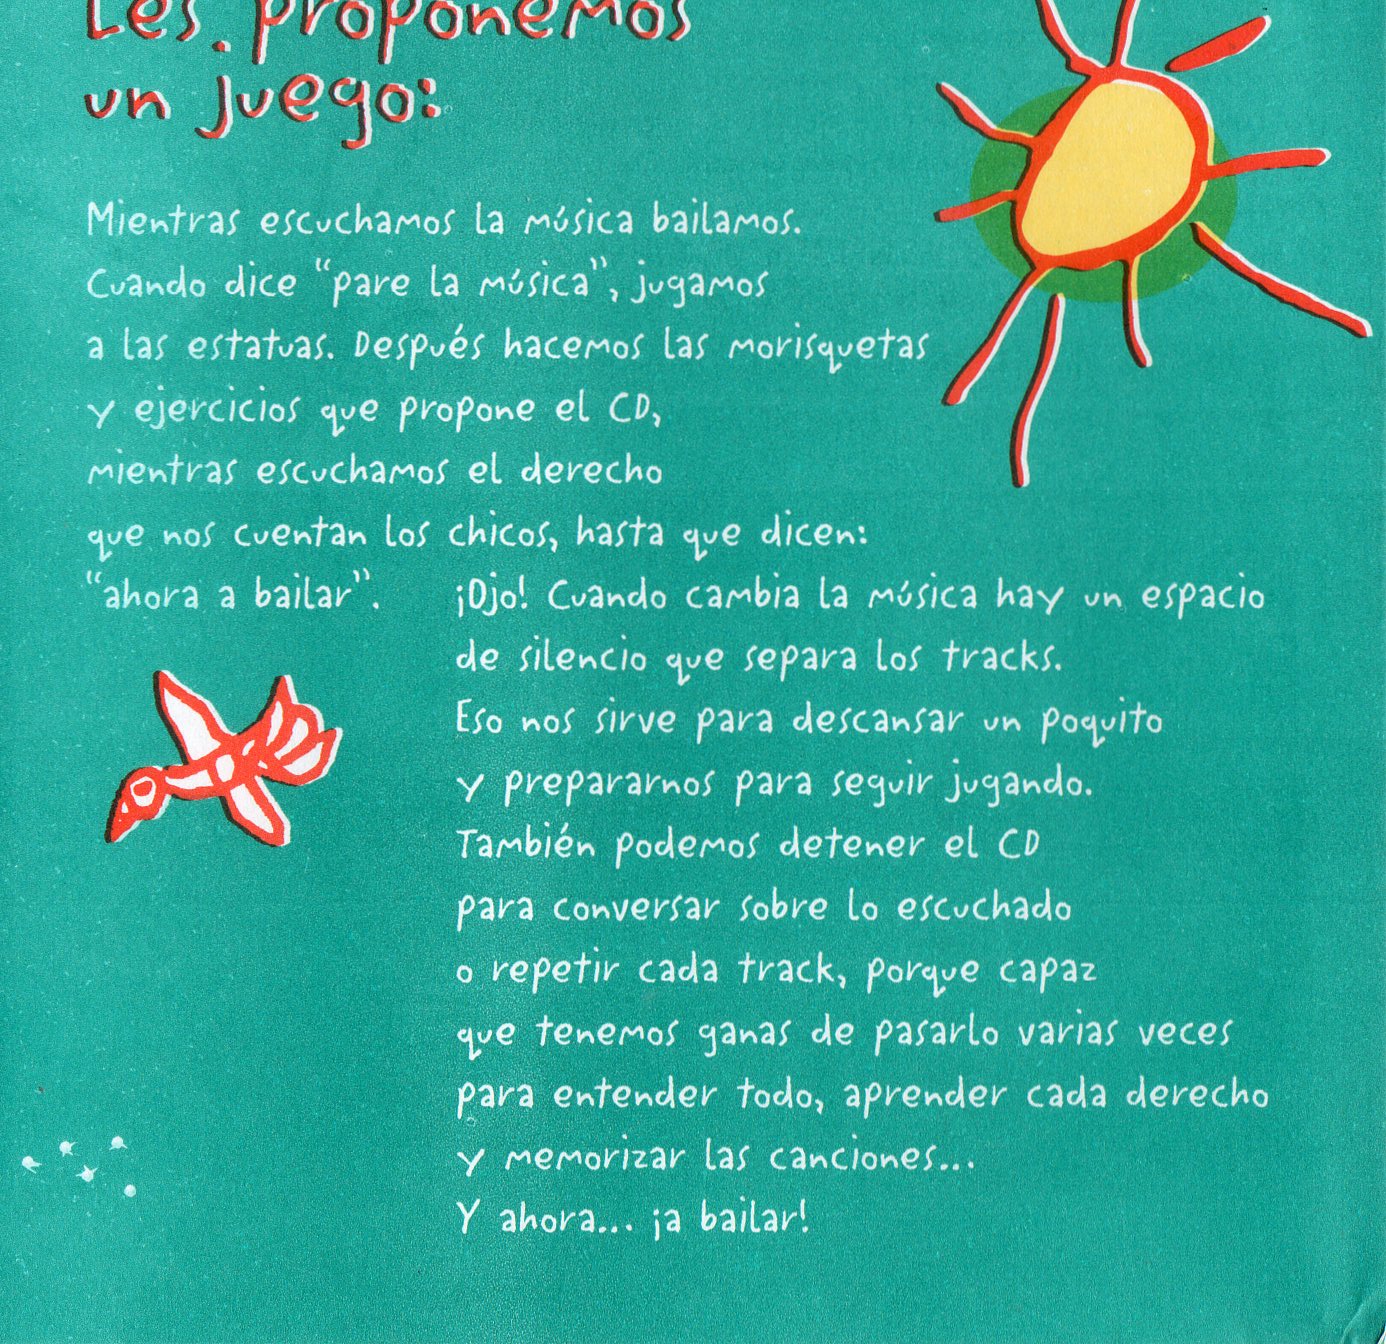 Les proponemos
un juego:
Mientras escuchamos la música bailamos.
Cuando dice “pare la música”, jugamos
a las estatuas. Después hacemos las morisquetas
y ejercicios que propone el CD,
mientras escuchamos el derecho
que nos cuentan los chicos, hasta que dicen:
“ahora a bailar”.
¡Ojo! Cuando cambia la música hay un espacio
de silencio que separa los tracks.
Eso nos sirve para descansar un poquito
y prepararnos para seguir jugando.
También podemos detener el CD
para conversar sobre lo escuchado
o repetir cada track, porque capaz
que tenemos ganas de pasarlo varias veces
para entender todo, aprender cada derecho
y memorizar las canciones...
Y ahora... ¡a bailar!